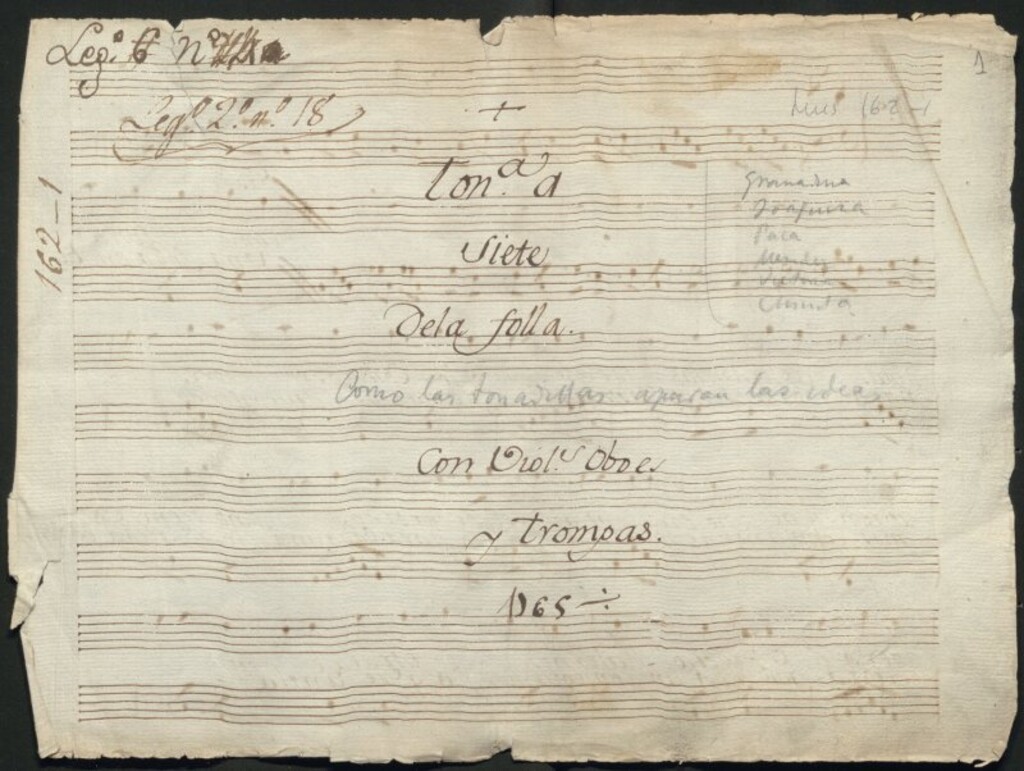 Leg.º 6 nº
1
Leg.º 2.º n.º 18
+
Mus 162-1
162-1
Ton.ª a
Siete
Dela folla.
Granadina
Joaquina
Paca
Mendez
Chinita
Como las tonadillas apuran las ideas
Con Viol.s Oboes
y Trompas.
1765